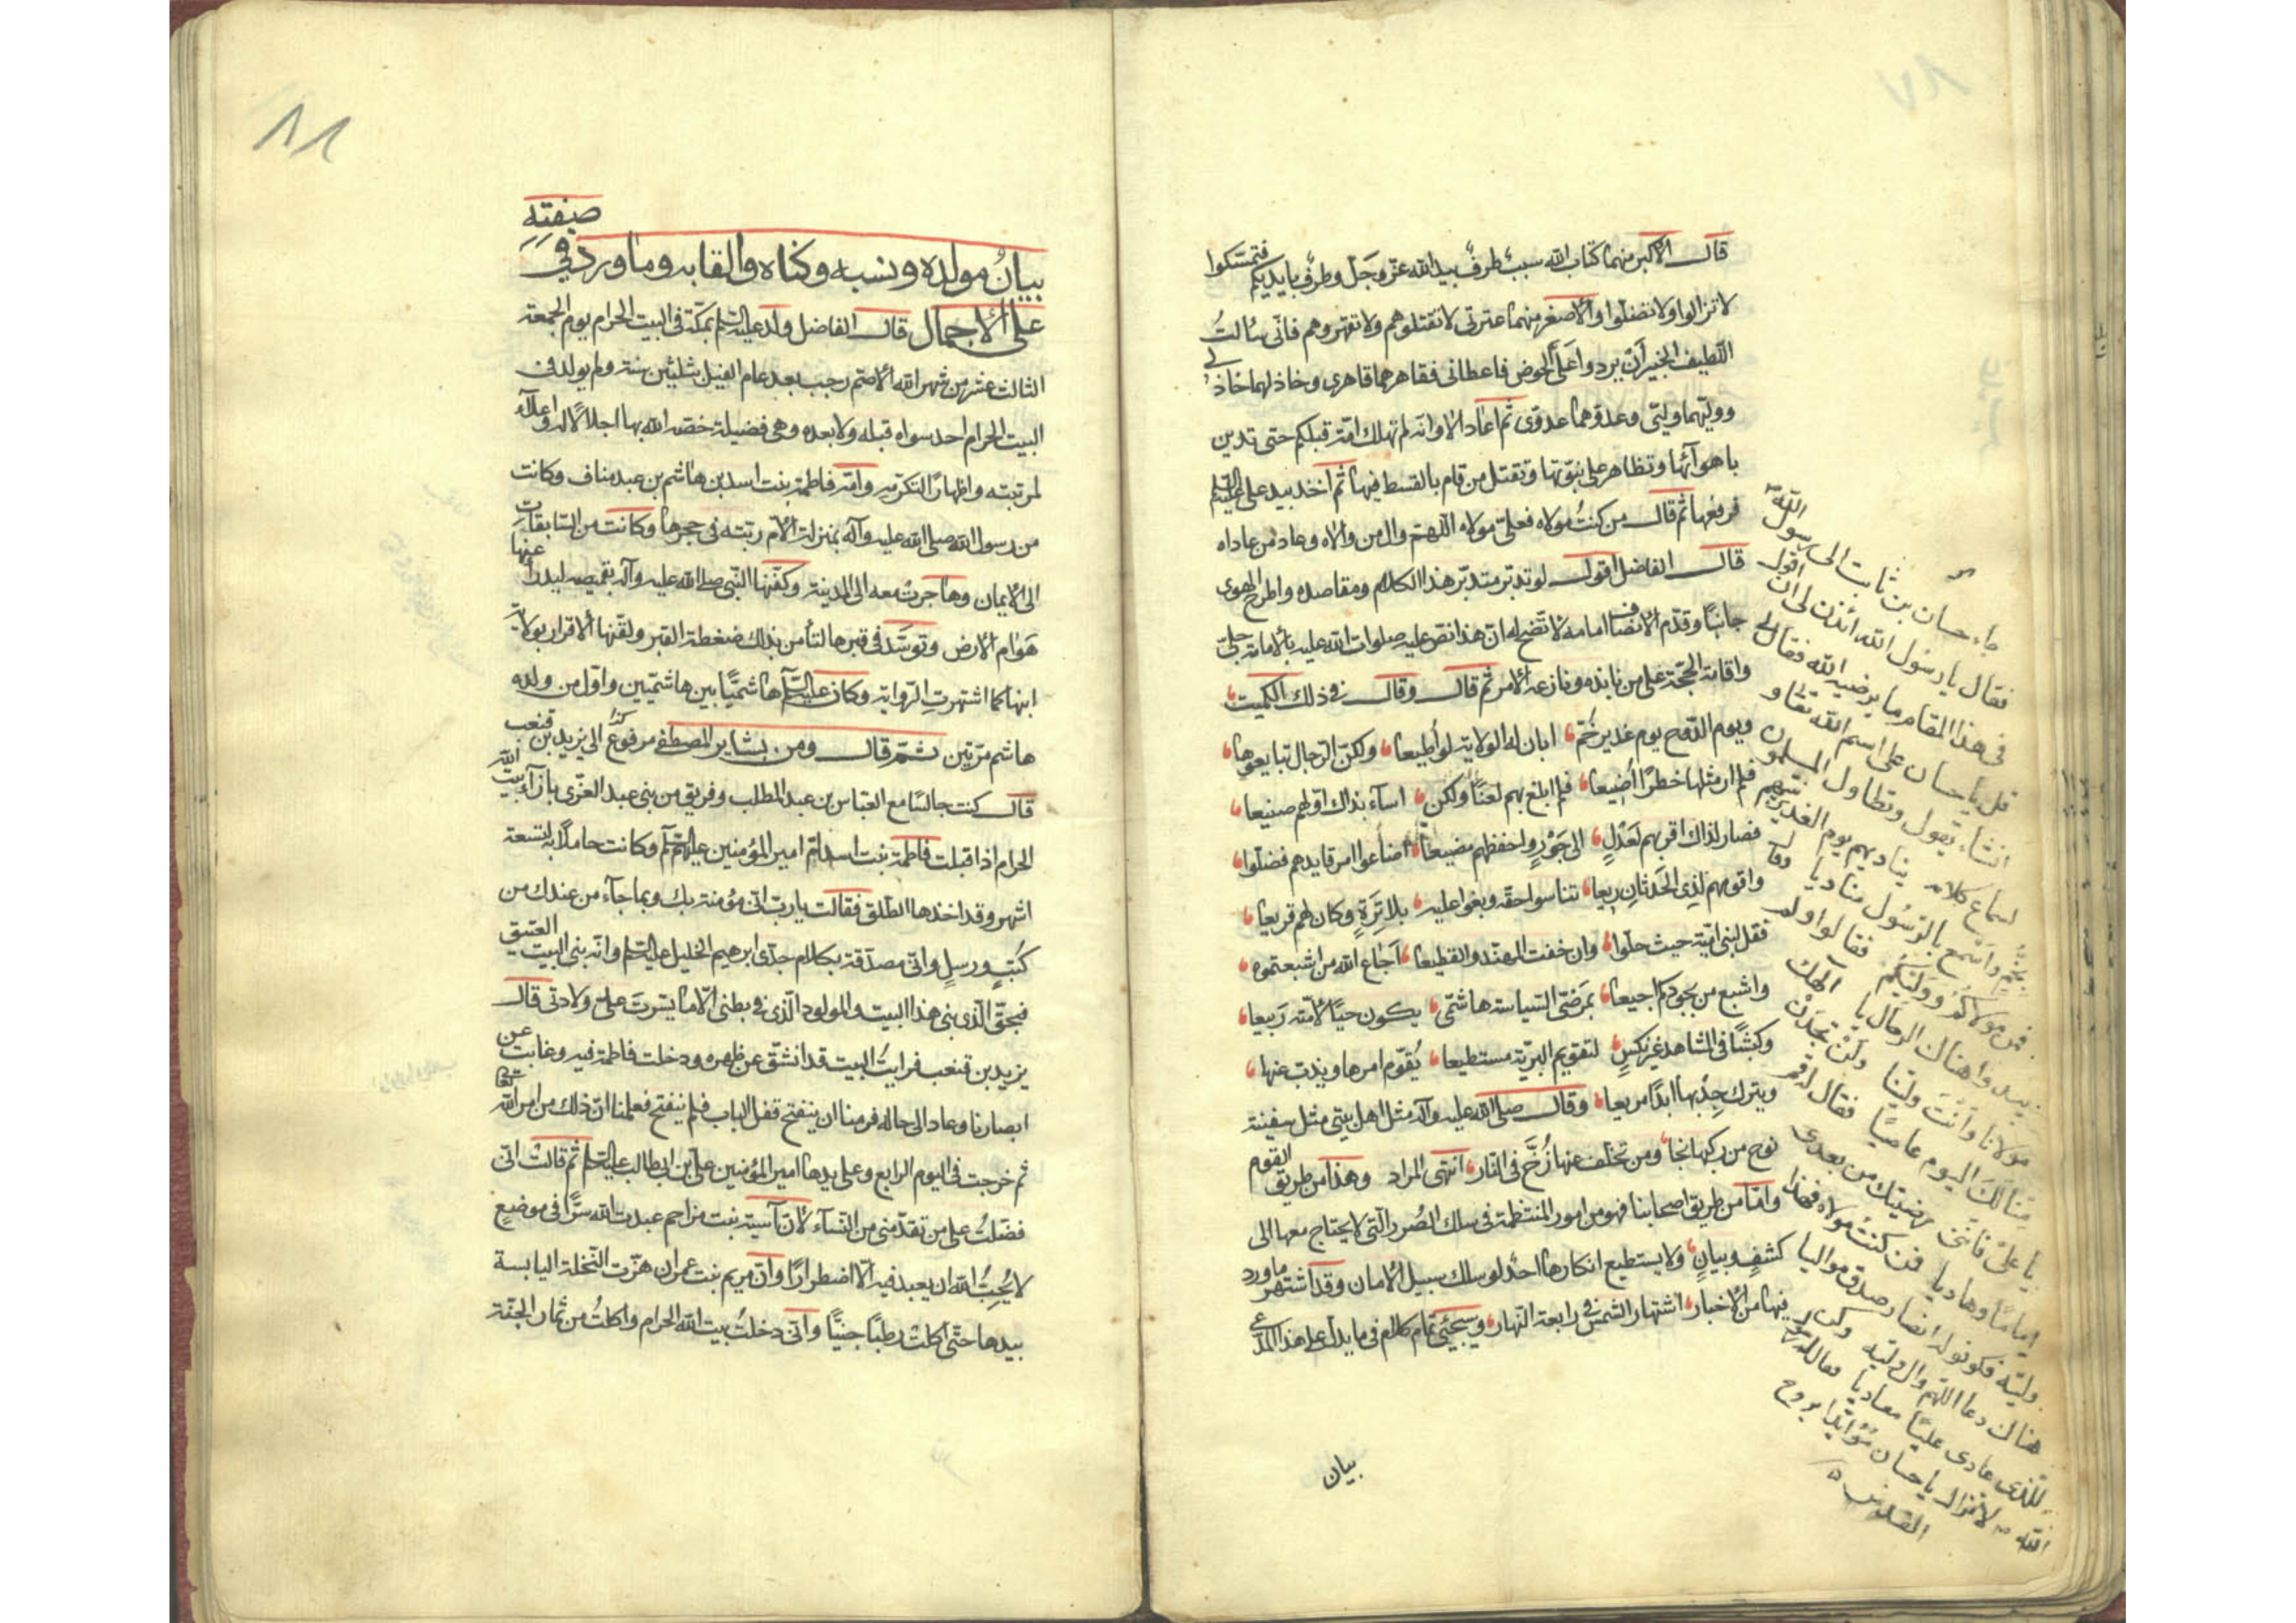 ٨٧
قال الاكبر منهما كتاب الله سبب طرف بيد الله عزّ وجَلّ وطرف بايديكم فتمسّكوا
لا تزالوا ولا تضلّوا والأصغر منهما عترتى لا تقتلوهم ولا تقهروهم فانّى سالتُ
اللّطيف الخبير أن يردوا عَلَىّ الحوض فاعطانى فقاهرهما قاهرى وخاذلهما خاذلى
ووليّهما وليّى وعدوّهما عدوّى ثم اعاد الا وانّه لم تهلك امّة قبلكم حتى تدين
باهوآئها وتظاهر على نبوّتها وتقتل من قام بالقسط فيها ثم اخذ بيد على عليه السّلم
فرفعها ثم قال من كنتُ مولاه فعلىّ مولاه اللّهمّ وال من والاه وعاد من عاداه
قال الفاضل اقول لو تدبّر متدبّر هذا الكلام ومقاصده واطرح الهوى
جانبًا وقدّم الانصاف امامه لاتّضح له انّ هذا نصّ عليه صلوات الله عليه بالأمامة جلىّ
واقامة الحجّة على من نابذه ونازعه الأمر ثم قال وقال فى ذلك الكميت
ويوم الدّوح يوم غدير خُمّ ابان له الولاية لو أُطيعا ولكنّ الرّجال تبايعوها
فلم ار مثلها خطرًا أُضيعا فلم ابلغ بهم لعنًا ولكن اسآء بذاك اوّلهم صنيعا
فصار لذاك اقربهم لعَدْلٍ الى جَوْرٍ واحفظهم مضيعا اضاعوا امر قايدهم فضلّوا
واقومهم لذى الحَدَثانِ ريعا تناسوا حقّه وبغوا عليه بلا تِرَةٍ وكان لهم قريعا
فقل لبنى اميّة حيث حلّوا وان خفت المهنّد والقطيعا أجَاع الله من اشبعتموه
واشبع من بجوركم اجيعا بمَرضىّ السّياسة هاشمّى يكون حيًا لأمّته رَبيعا
وكبشًا فى المشاهد غير نكسٍ لتقويم البريّة مستطيعا يُقوّم امرها ويذب عنها
ويترك جدبها أبدًا مريعا وقال صلى الله عليه وآله مثل اهل بيتى مثل سفينة
نوح من ركبها نجا ومن تخلّف عنها زُخَّ فى النّار انتهى المراد وهذا من طريق القوم
وامّا من طريق اصحابنا فهو من امور المنتظمة فى سلك الصُور الّتى لا يحتاج معها الى
كشفٍ وبيانٍ ولا يستطيع انكارها احدٌ لو سلك سبيل الأمان وقد اشتهر ما ورد
فيها من الأخبار اشتهار الشمس فى رابعة النّهار وسيجئ تمام كلام فى ما يدلّ على هذا المدّعى
بيان
جاء حسان بن ثابت الى رسول الله ص
فقال يا رسول الله ائذن لى ان اقول
فى هذا المقام ما يرضيه الله فقال لى
قل يا حسان على اسم الله تعالى و
انشاء يقول وتطاول المسلمون
لسماع كلامه يناديهم يوم الغدير نبيّهم
بخمٍّ واسْمَع بالرّسُول مناديا وقال
فمن مولاكُمُ ووَلَيّكُم فقالوا ولم
يبدوا هناك الرجال يا الهك
مولانا وأنْتَ وليّنا ولَنْ تجدَنْ
منّا لَكَ اليوم عاصيًا فقال له قم
يا علىّ فاننى رضيتك من بعدى
امامًا وهاديا فمن كنتُ مولاه فهذا
وليّه فكونوا له انصار صدق مواليا
هناك دعا اللهّم وال وليّه وكن
للّذى عادى عليًا معاديا فقال له رسول
الله ص لا تزال يا حسان مُؤيّدا بروح
القدس
٨٨
بيانُ مولده ونسبه وكناه والقابه وما ورد فى صفته
على الأجمال قال الفاضل ولد عليه السّلم بمكّة فى البيت الحرام يوم الجمعة
الثالث عشر من شهر الله الأصمّ رجب بعد عام الفيل بثلثين سنة ولم يولد فى
البيت الحرام احد سواه قبله ولا بعده وهى فضيلة خصّه الله بها اجلالًا له واعلآءً
لمرتبته واظهارًا لتكرّمه وامّه فاطمة بنت اسد بن هاشم بن عبد مناف وكانت
من رسول الله صلى الله عليه وآله بمنزلة الأمّ ربّته فى حجرها وكانت من السّابقات
الى الأيمان وهاجرت معه الى المدينة وكفّنها النّبى صلى الله عليه وآله بقميصه ليدرأ عنها
هَوَامّ الارض وتوسَّد فى قبرها لتأمن بذلك ضغطة القبر ولقّنها الأقرار بولاية
ابنها كما اشتهرت الرّواية وكان عليه السّلم هاشميًّا بين هاشميّين واوّل من ولده
هاشم مرّتين ثمّ قال ومن بشاير المصطفى مرفوع الى يزيد بن قنعب
قال كنت جالسًا مع العبّاس بن عبد المطلب وفريق من بنى عبد العزّى بازآء بيت الله
الحرام اذا قبلت فاطمة بنت اسد امّ امير المؤمنين عليه السّلم وكانت حاملًا به لتسعة
اشهر وقد اخذها الطّلق فقالت يا ربّ انّى مؤمنة بك وبما جآء من عندك من
كُتُبٍ ورسلٍ وانّى مصدّقة بكلام جدّى ابرهيم الخليل عليه السّلم وانّه بنى البيت العتيق
فبحقّ الّذى بنى هذا البيت والمولود الّذى فى بطنى الّا ما يسّرتَ علىّ ولادتى قال
يزيد بن قنعب فرايتُ البيت قد انشقّ عن ظهره ودخلت فاطمة فيه وغابت عن
ابصارنا وعاد الى حاله فرمنا ان ينفتح قفل الباب فلم ينفتح فعلمنا انّ ذلك من امر الله تعالى
ثم خرجت فى اليوم الرابع وعلى يدها امير المؤمنين علىّ بن ابى طالب عليه السّلم ثم قالت انّى
فضّلتُ على من تقدّمنى من النّسآء لأنّ آسية بنت مزاحم عبدت الله سرًّا فى موضعٍ
لا يُحِبُّ الله ان يعبد فيه الّا اضطرارًا وانّ مريم بنت عمران هزّت النّخلة اليابسة
بيدها حتّى اكلت رطبًا جنيًّا وانّى دخلتُ بيت الله الحرام واكلتُ من ثمار الجنّة